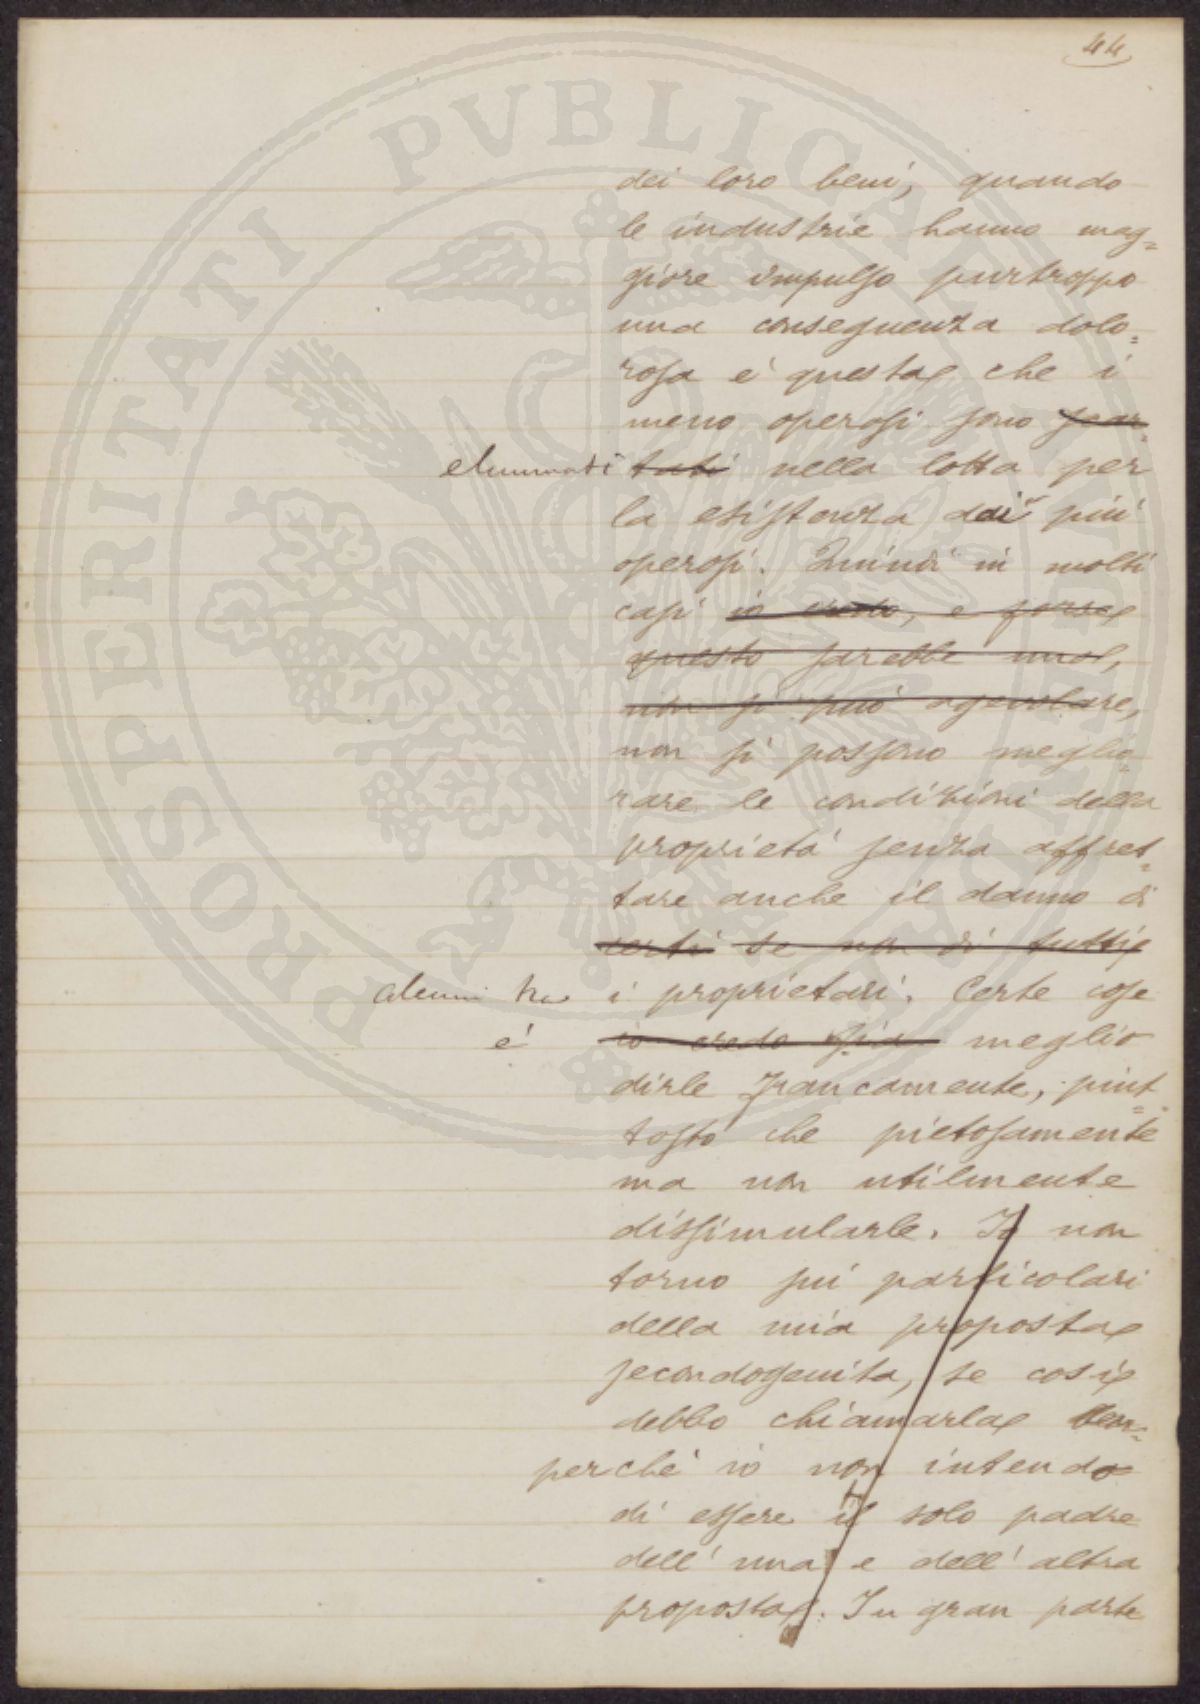 44
dei loro beni, quando
le industrie hanno mag=
giore impulso purtroppo
una conseguenza dolo=
rosa è questa che i
meno operosi sono scar=
eliminati tati nella lotta per
la esistenza dai più
operosi. Quindi in molti
casi io credo, e forse
questo sarebbe una,
non si può agevolare,
non si possono meglio=
rare le condizioni della
proprietà senza affret=
tare anche il danno di
certi se non di tutti
alcuni tra i proprietari. Certe cose
è io credo sia meglio
dirle francamente, piut=
tosto che pietosamente
ma non utilmente
dissimularle. Io non
torno sui particolari
della mia proposta
secondogenita, se così
debbo chiamarla
perchè io non intendo
di essere il solo padre
dell'una e dell'altra
proposta. In gran parte
PROSPERITATI PVBLICAE